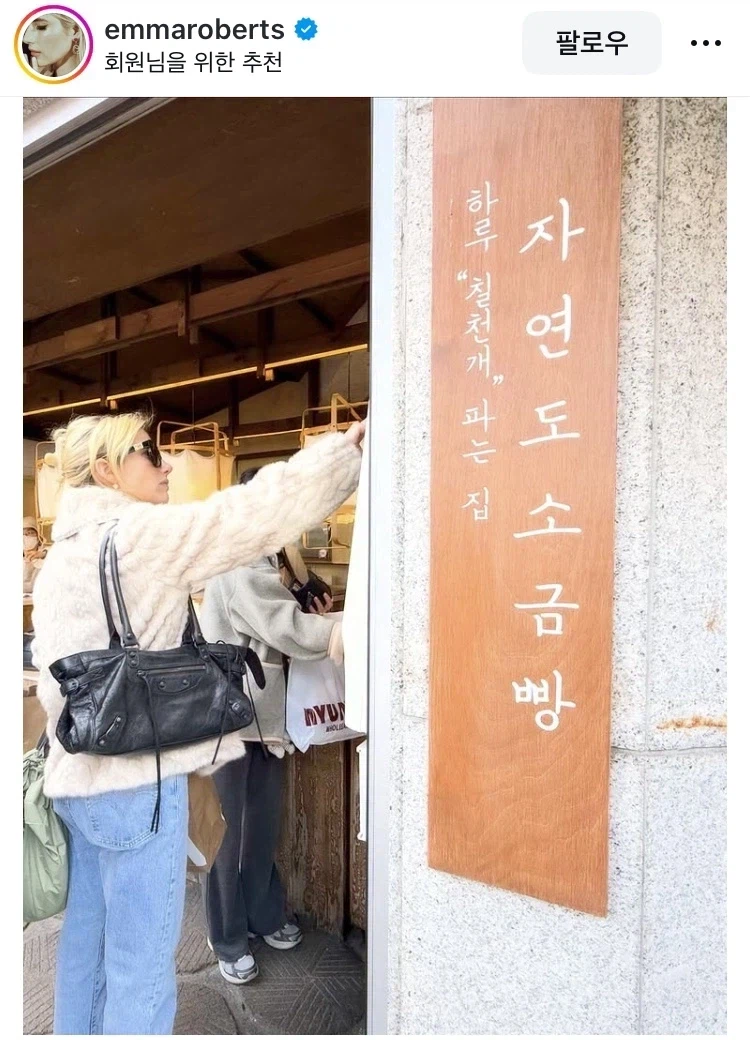 emmaroberts
회원님을 위한 추천
팔로우
자연도소금빵
하루 “칠천개” 파는 집